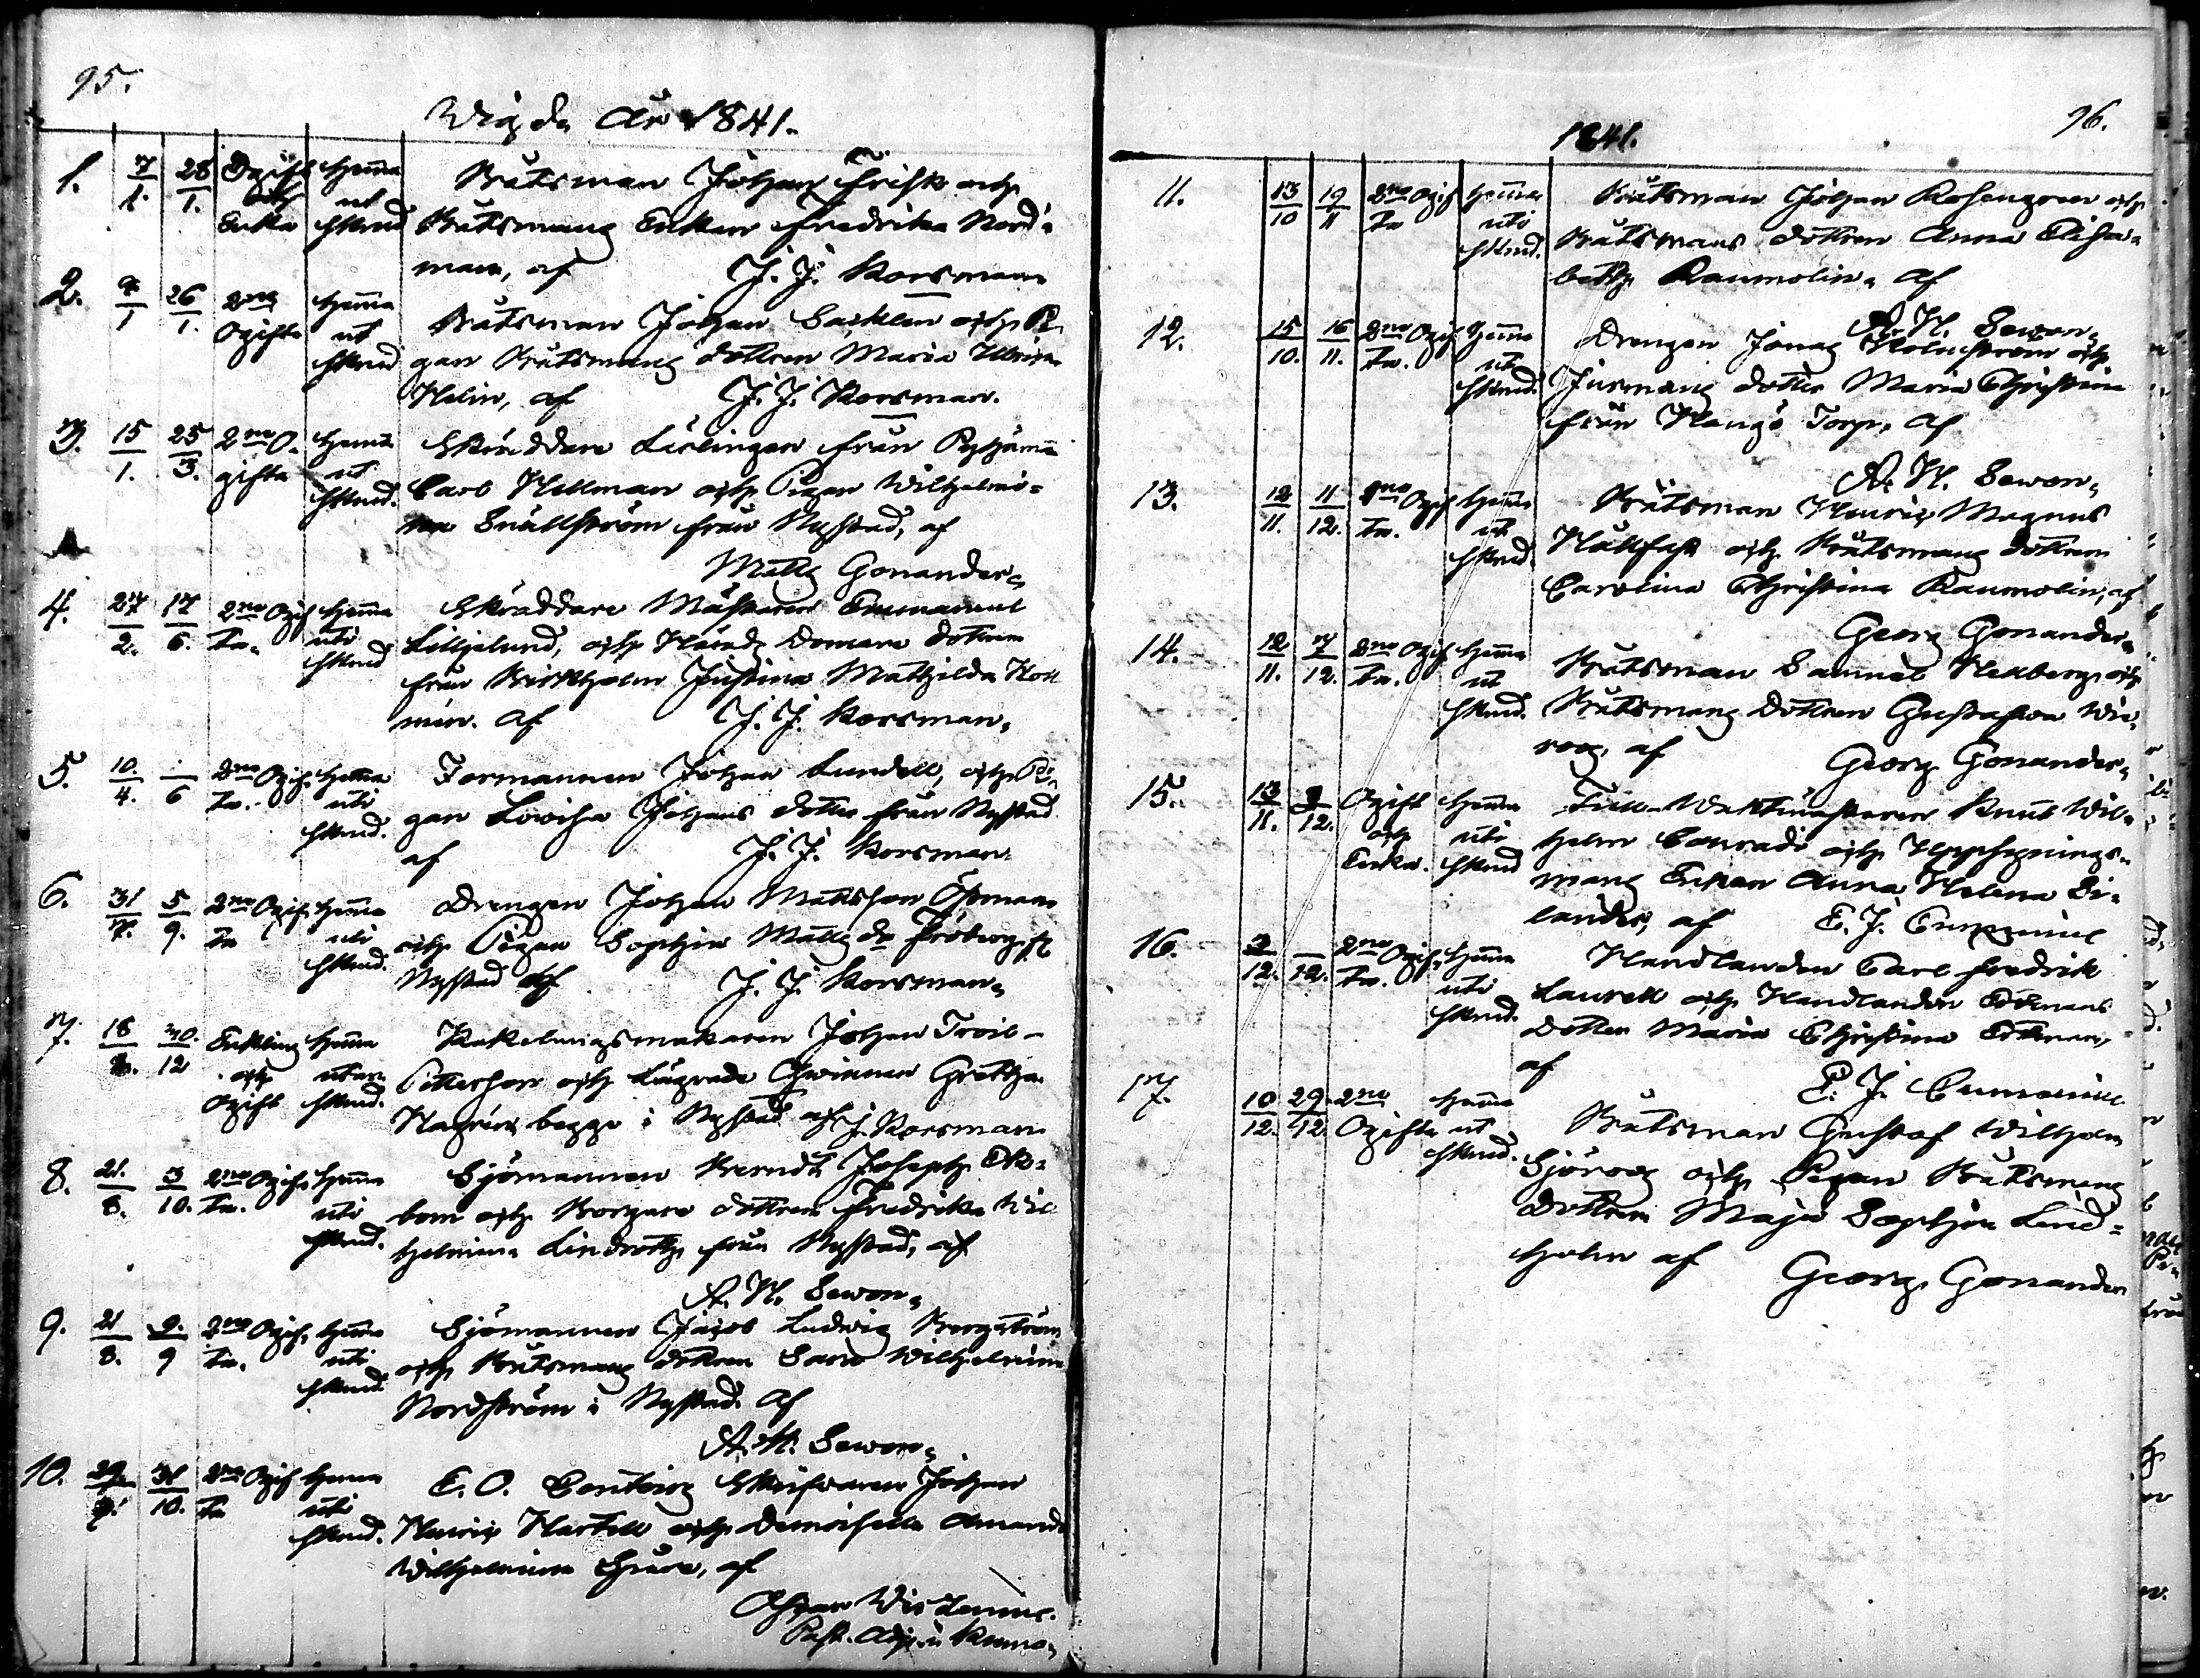 95.
Wigda År 1841.
1. 7/1. 28/1. Ogift och Enka Hemma ut Ehstnd
Båtsman Johan Frisk och
Båtsmans Enkan Fredrika Nord-
man, af J. J. Korsman
2. 9/1 26/1. 2ne Ogifta Hemma ut
Båtsman Johan Säcklin och Pi-
gan Båtsmans dottren Maria Ulrica
Helin, af J. J. Korsman.
3. 15/1. 25/3. 2ne O- gifta Hemma ut
Skräddare Lärlingen från Pyhäma
Carl Hellman och Pigan Wilhelmi-
na Snällström från Nystad, af
Matts Gonander
4. 27/2. 17/6. 2ne Ogif- ta. Hemma uti
Skräddare Mästaren Emmanuel
Lilljelund, och Härads Domare dottren
från Birkholm Justina Mathilda
J. J. Korsman,
5. 10./4. 6 2ne Ogif- ta. Hemma uti
Formannen Johan Lundell, och Pi-
gan Lovisa Johans dotter från Nystad
af J. J. Korsman
6. 31/7. 5/9. 2ne Ogif- ta Hemma uti
Drengen Johan Mattsson Östman
och Pigan Sophia Matts dr Fröberg fr
Nystad af J. J. Korsman,
7. 18 30./12 Enkling och Ogift Hemma utan
Kakelungsmakaren Johan Troil-
Pettersson och Lägrade Qwinnan Gretha
Hagrén begge i Nystad af J. Korsman
8. 21./8. 3/10. 2ne Ogif- ta. Hemma uti
Sjömannen Berndt Joseph Ek-
bom och Borgare dottren Fredrika Wil
helmina Lindroth från Nystad, af
A. H. Sewon,
9. 21/8. 9./9 2ne Ogif- ta. Hemma uti
Sjömannen Jacob Ludwig Bergström
och Båtsmans dottren Sara Wilhelmina
Nordström i Nystad af
A. H. Sewon,
10. 29. 31/10. 2ne Ogif- ta Hemma uti
E. O. Contoirs Skrifvaren Johan
Henric Hartell och Demoiselle Amanda
Wilhelmina Gure, af
Past. Adj. i Kumo,
96.
1841.
11. 13/10 19/11 2ne Ogif- ta Hemma uti
Båtsman Johan Rosengren och
Båtsmans dottren Anna Elisa-
beth Raumolin, af
A. H. Sewon,
12. 15/10. 16/11. 2ne Ogif- ta. Hemma ut
Drengen Jonas Holmström och
dotter Maria Christina
från Hangö Torp, af
A. H. Sewon,
13. 12/11. 11/12. 2ne Ogif- ta. Hemma ut
Båtsman Henric Magnus
Hållfast och Båtsmans dottren
Carolina Christina Raumolin, af
Georg Gonander,
14. 12/11. 7/12. 2ne Ogif- ta. Hemma ut
Båtsman Samuel Hedberg och
Båtsmans dottren Gustafva Wic-
roos, af Georg Gonander,
15. 13/11. 9/12. Ogift och Enka. Hemma uti
Tull-Waktmästaren Knut Wil-
helm Conradi och Uppsynings-
mans Enkan Anna Helena Si-
lander, af E. J. Cumenius
16. 2/12. 12. 2ne Ogif- ta. Hemma uti
Handlanden Carl Fredrik
Laurell och Handlanden Ekmans
Dotter Maria Christina Ekman,
af E. J. Cumenius
17. 10/12. 29/12. 2ne Ogifta Hemma ut
Båtsman Gustaf Wilhelm
Sjöroos och Pigan Båtsmans
Dottren Maja Sophia Lind-
holm af Georg Gonander